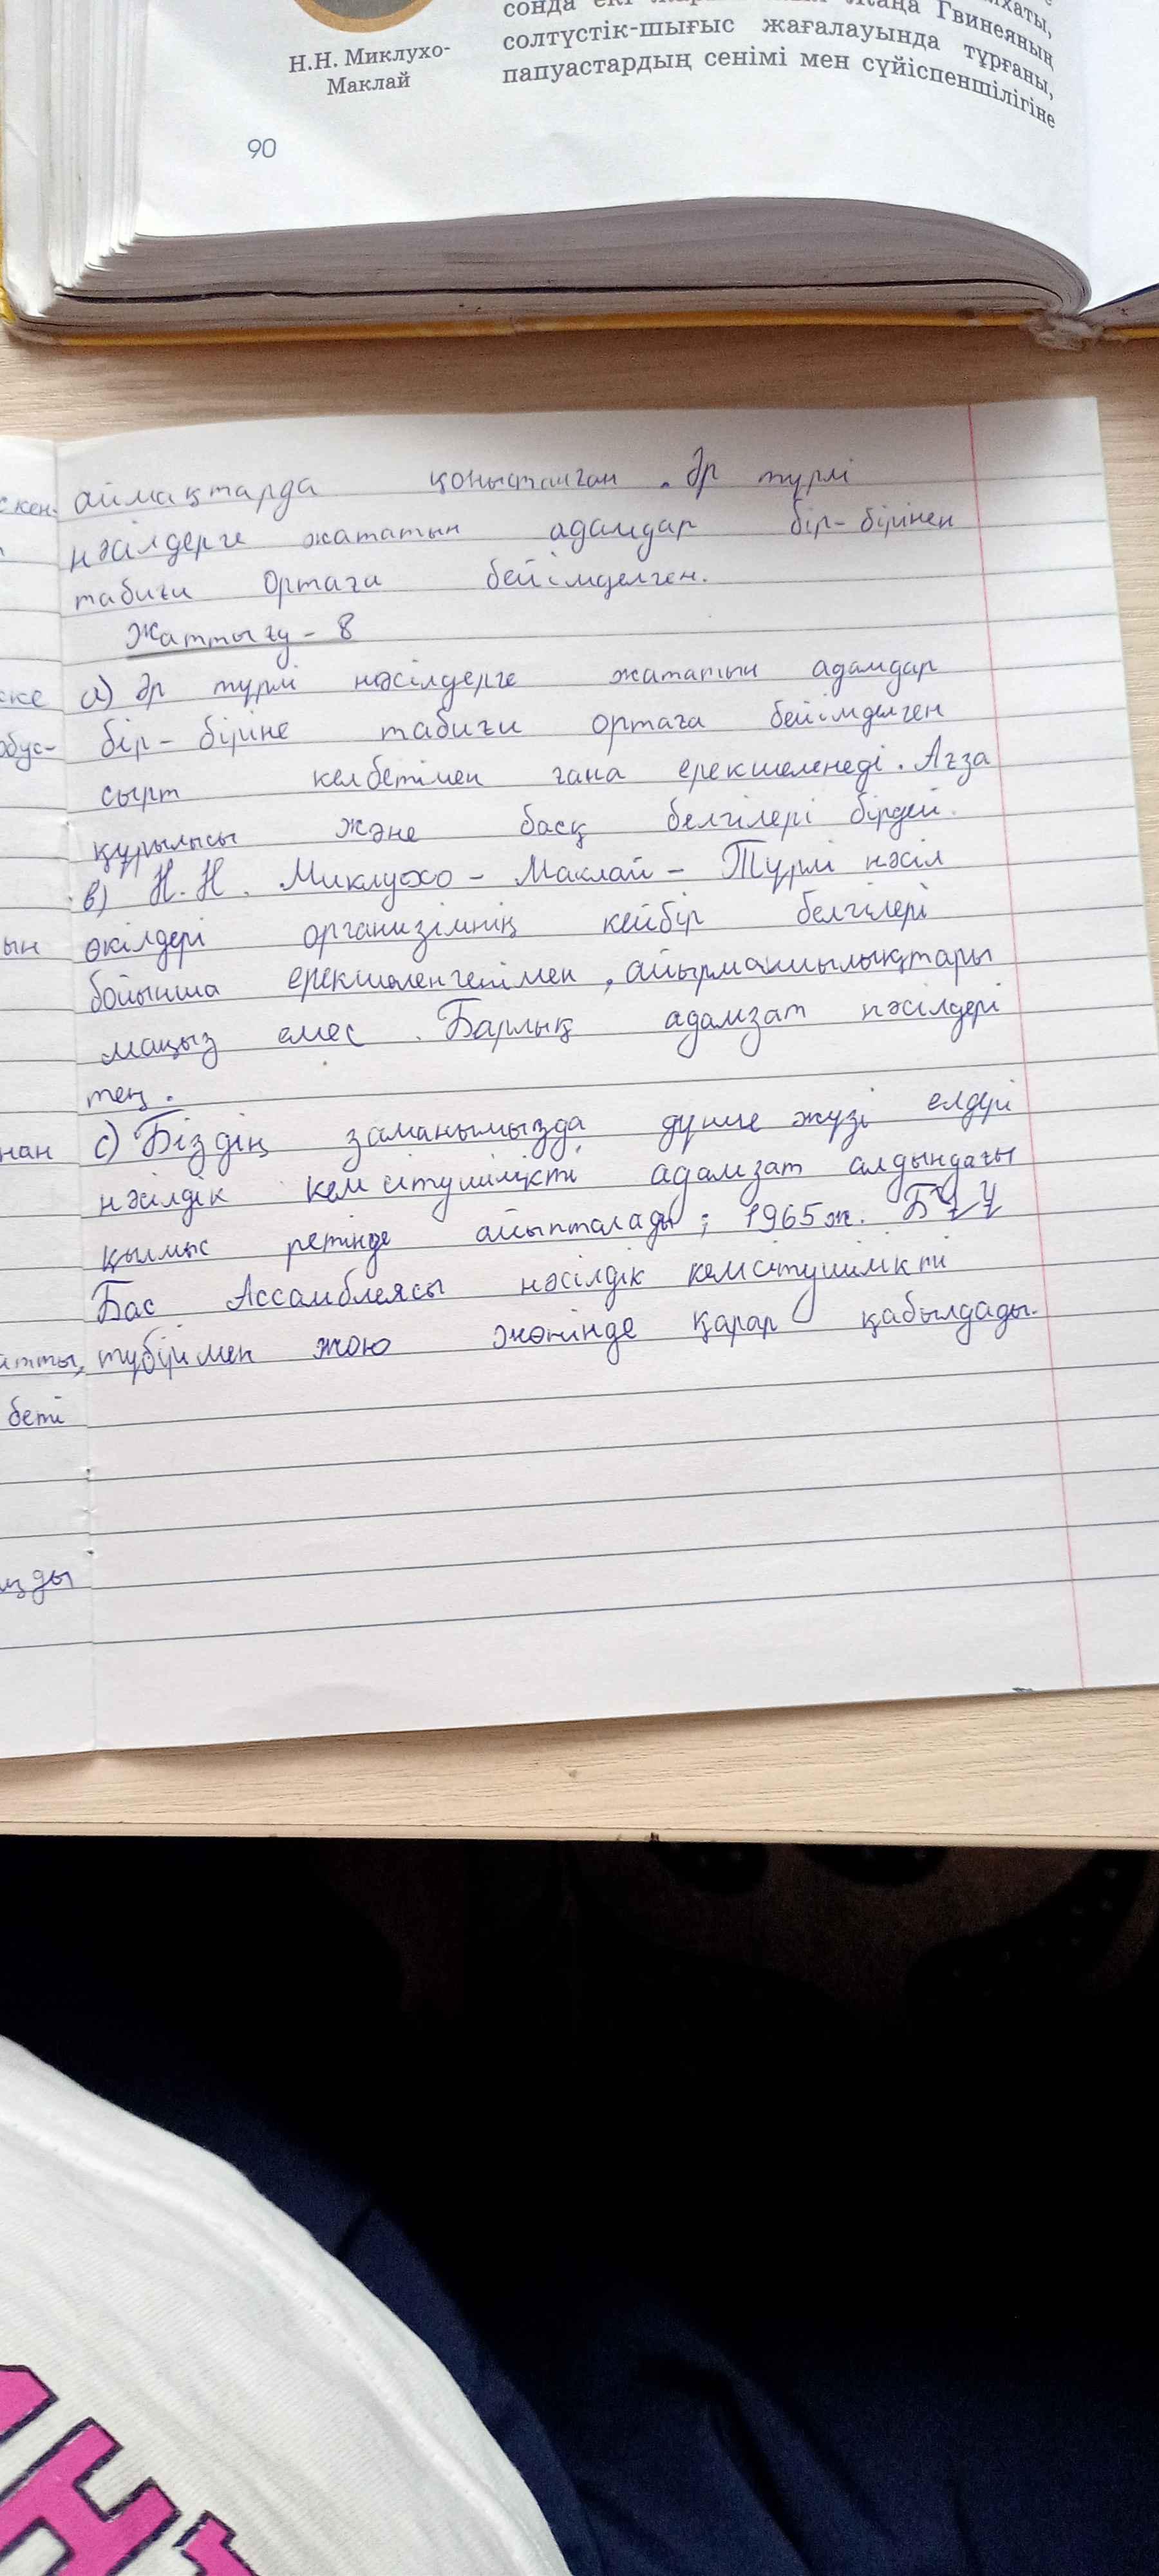 Н.Н. Миклухо-
Маклай
90
сонда екі Жаңа Гвинеяның
солтүстік-шығыс жағалауында тұрғаны,
папуастардың сенімі мен сүйіспеншілігіне
аймақтарда қоныстанған. Әр түрлі
нәсілдерге жататын адамдар бір-бірінен
табиғи ортаға бейімделген.
Жаттығу - 8
а) Әр түрлі нәсілдерге жататын адамдар
бір-біріне табиғи ортаға бейімделген
сырт келбетімен ғана ерекшеленеді. Ағза
құрылысы және басқ белгілері бірдей.
в) Н.Н. Миклухо - Маклай - Түрлі нәсіл
өкілдері организімнің кейбір белгілері
бойынша ерекшеленгенімен, айырмашылықтары
маңыз емес. Барлық адамзат нәсілдері
тең.
с) Біздің заманымызда дүние жүзі елдері
нәсілдік кемсітушілікті адамзат алдындағы
қылмыс ретінде айыпталады; 1965 ж. БҰҰ
Бас Ассамблеясы нәсілдік кемсітушілікті
түбірімен жою жөнінде қарар қабылдады.
кен-
ске
обус-
ын
нан
атты,
беті
ңды